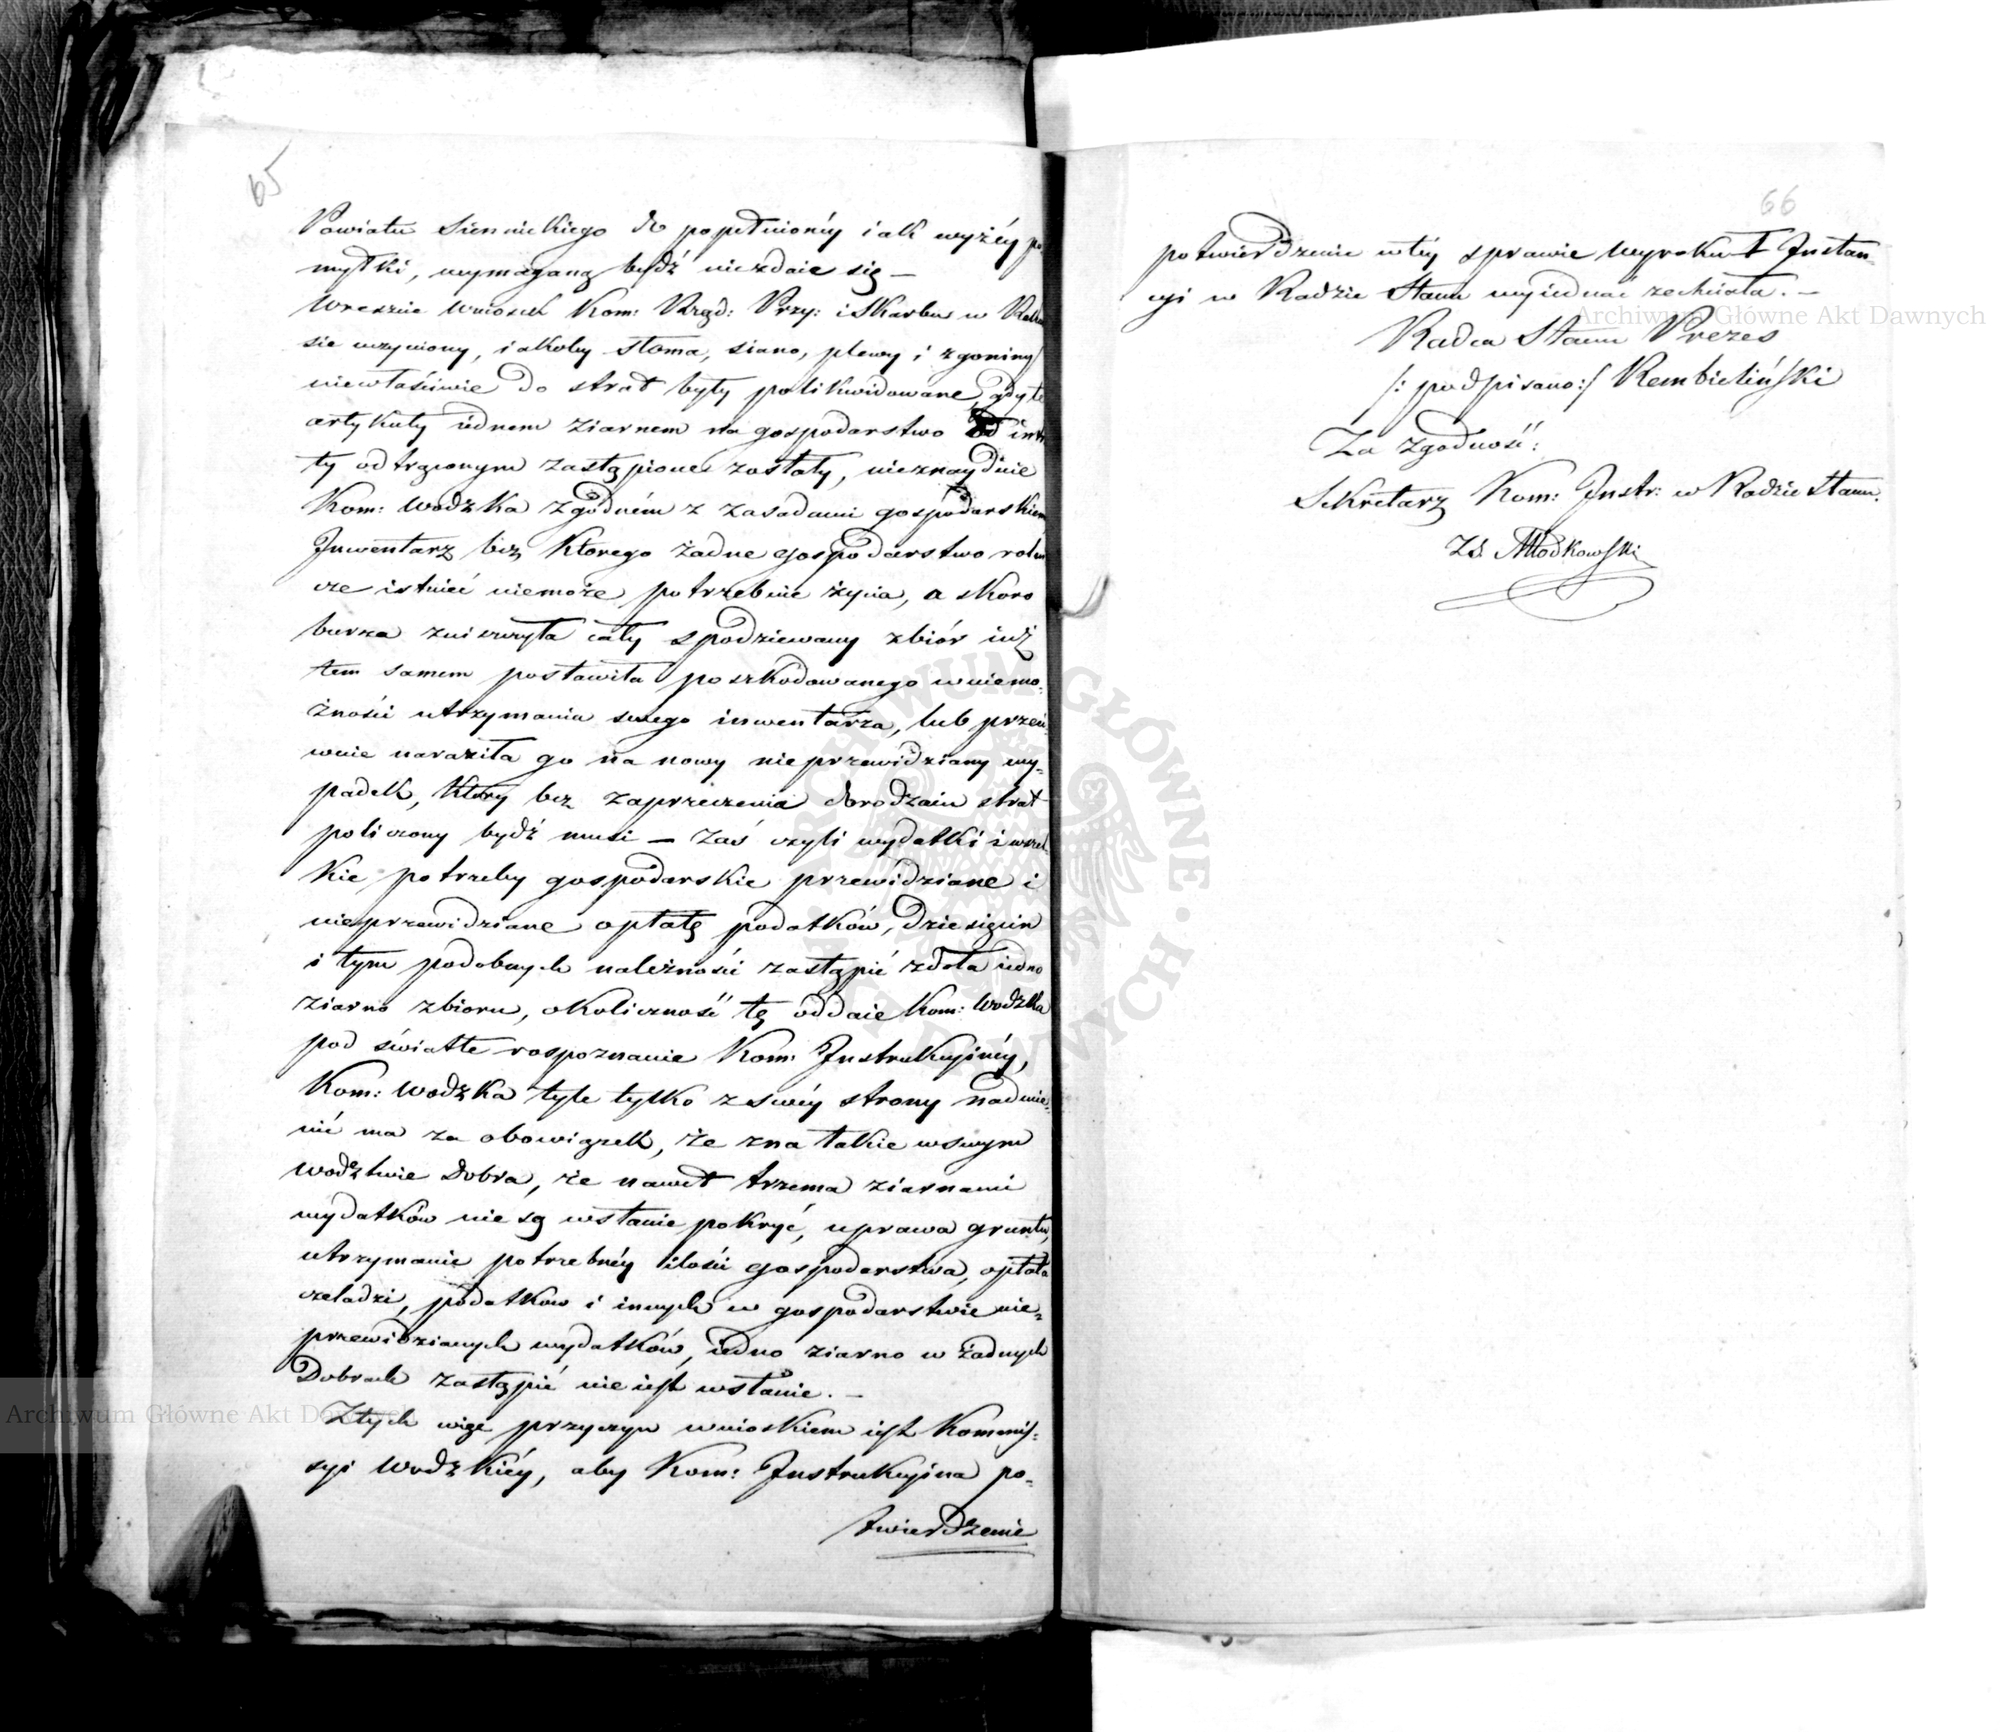 65
Powiatu Siennickiego do popełnionéy iak wyżéy po
myłki, wymaganą bydź niezdaie się —
Wreszcie wniosek Kom: Rząd: Przy: i Skarbu w Rekur
sie uczyniony, iakoby słoma, siano, plewy i zgoniny
niewłaściwie do strat były polikwidowane, gdy te
artykuły iednem ziarnem na gospodarstwo od intra
ty odtrąconym zastąpione zostały, nieznayduie
Kom: Wodzka zgodném z zasadami gospodarskiem
Inwentarz bez którego żadne gospodarstwo rolni
cze istnieć niemoże, potrzebuie życia, a skoro
burza zniszczyła cały spodziewany zbiór iuż
tem samem postawiła poszkodowanego w niemo:
żności utrzymania swego inwentarza, lub przeci:
wnie naraziła go na nowy nieprzewidziany wy=
padek, który bez zaprzeczenia do rodzaiu strat
policzony bydź musi — Zaś czyli wydatki i wszel
kie potrzeby gospodarskie przewidziane i
nieprzewidziane opłatę podatków, dziesięcin
i tym podobnych należności zastąpić zdoła iedno
ziarno zbioru, okoliczność tę oddaie Kom: Wodzka
pod światłe rospoznanie Kom: Instrukcyinéy,
Kom: Wodzka tyle tylko z swéy strony nadmie:
nić ma za obowiązek, że zna takie w swym
Wodztwie Dobra, że nawet trzema ziarnami
wydatków nie są wstanie pokryć, uprawa gruntu,
utrzymanie potrzebnéy ilości gospodarstwa, opłata
czeladzi, podatkow i innych w gospodarstwie nie=
przewidzianych wydatków, iedno ziarno w żadnych
Dobrach zastąpić nie iest wstanie. —
Z tych więc przyczyn wnioskiem iest Kommis:
syi Wodzkiéy, aby Kom: Instrukcyina po=
twierdzenie
66
potwierdzenie w téy sprawie wyroku I Instan=
cyi w Radzie Stanu wyiednać zechciała. —
Radca Stanu Prezes
/: podpisano :/ Rembieliński
Za zgodność:
Sekretarz Kom: Instr: w Radzie Stanu.
Młodkowski
Archiwum Główne Akt Dawnych
Archiwum Główne Akt Dawnych
ARCHIWUM GŁÓWNE AKT DAWNYCH